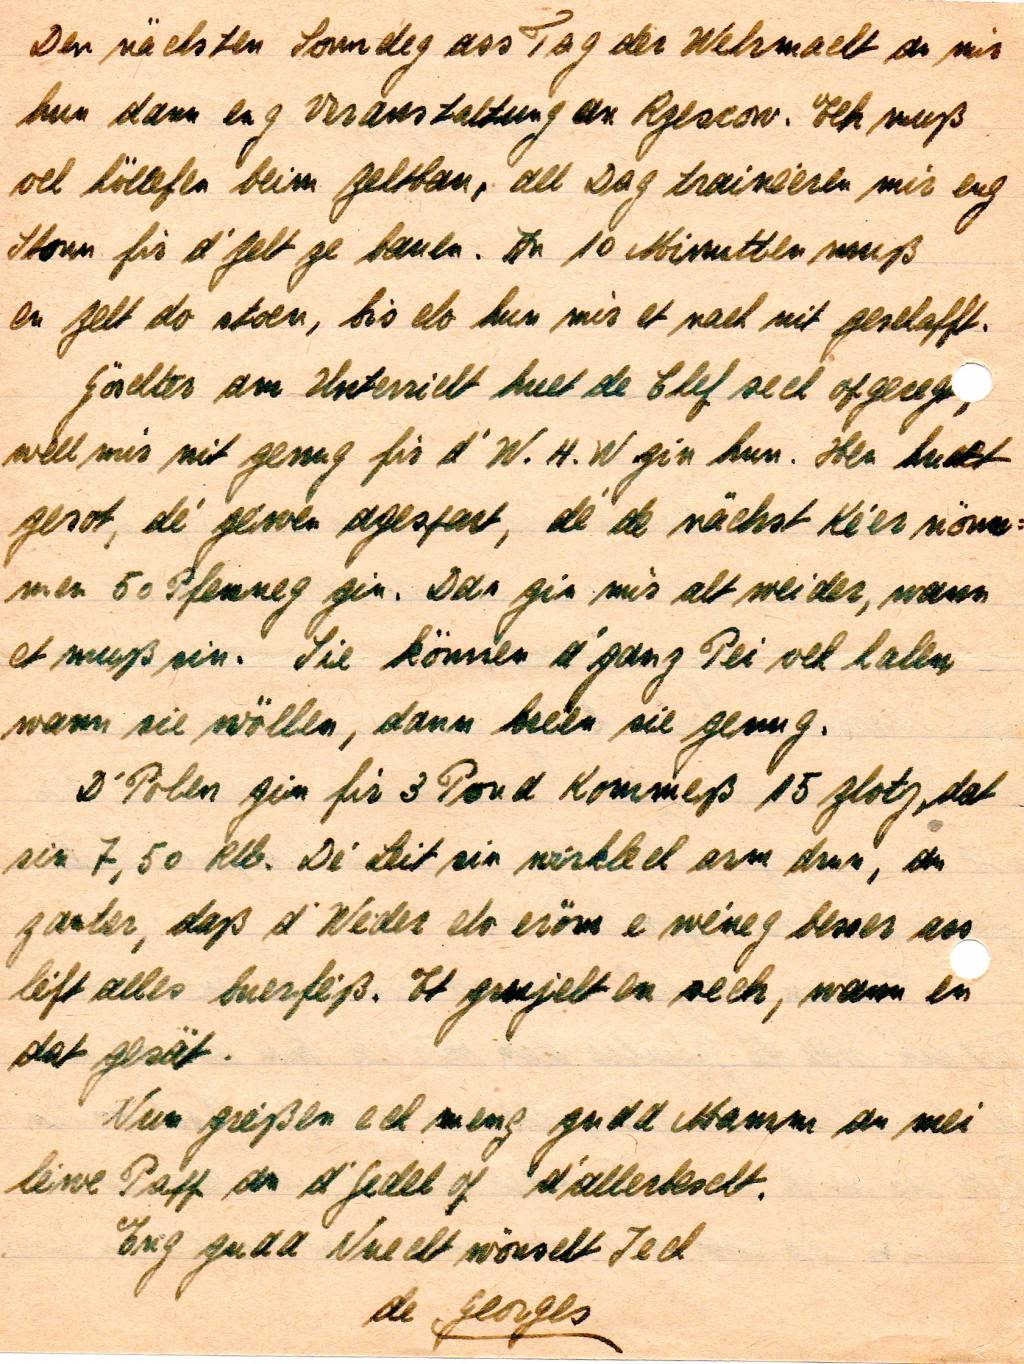 Den nächsten Sonndeg ass Tag der Wehrmacht an mir
hun dann eng Veranstaltung an Rzeszow. Ech muß
och höllefen beim Zeltbau, all Dag trainéeren mir eng
Stonn fir d'Zelt ze bauen. An 10 Minutten muß
en Zelt do stoen, bis elo hun mir et nach nit geschafft.
Göschter am Unterricht huet de Chef sech ofgeregt,
well mir nit genug fir d'W.H.W gin hun. Hen huet
gesot, dé géwen agespart, dé de nächst Kéer nömm=
men 50 Pfenneg gin. Dan gin mir alt weider, wann
et muß sin. Sie können d'ganz Pei och halen
wann sie wöllen, dann hueen sie genug.
D'Polen gin fir 3 Pond Kommeß 15 Zloty, dat
sin 7,50 RM. Dé Leit sin wirklech arm drun, an
zanter, daß d'Wieder elo eröm e wéineg besser ass
léift alles buerféiß. Et grujelt en sech, wann en
dat gesäit.
Nun gréißen ech meng gudd Mamm an mei
léiwe Papp an d'Gedel of d'allerbescht.
Eng gudd Nuecht wönscht Iech
de Georges